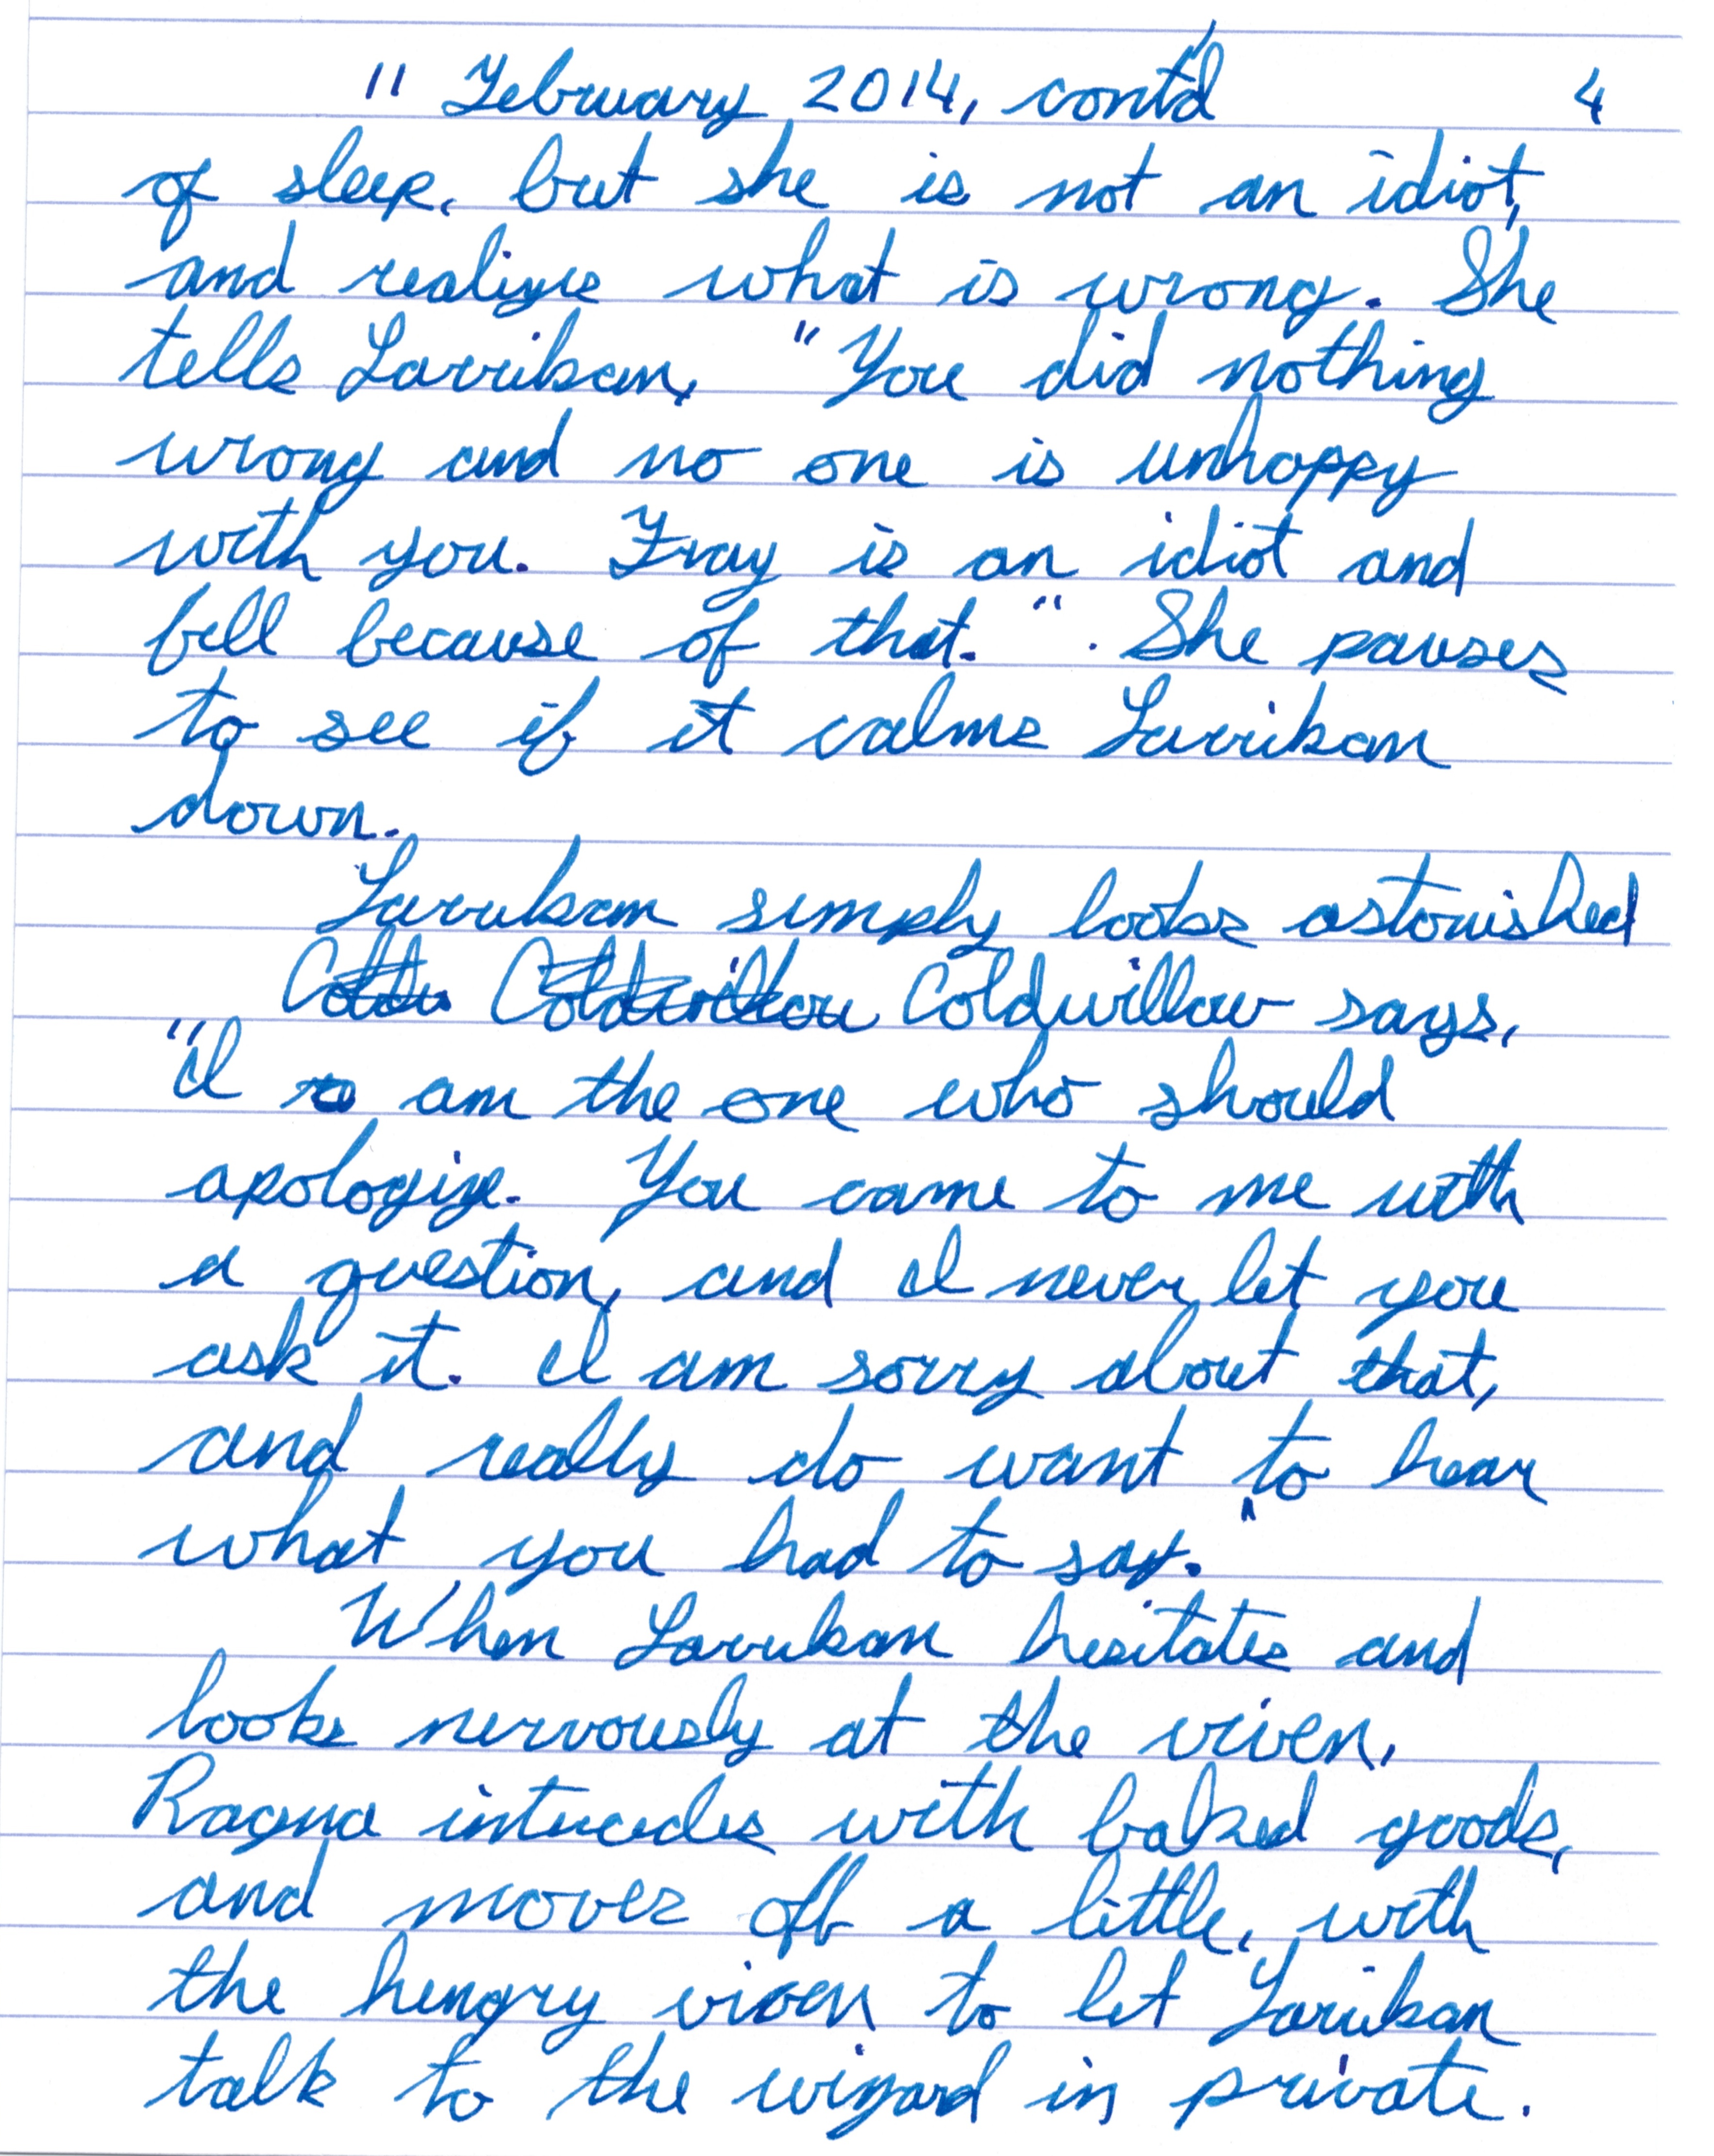 11 February 2014, cont'd 4
of sleep, but she is not an idiot,
and realizes what is wrong. She
tells Lavrikan, "You did nothing
wrong and no one is unhappy
with you. Fray is an idiot and
fell because of that.". She pauses
to see if it calms Lavrikan
down.
Lavrikan simply looks astonished
Coldwillow says,
"I am the one who should
apologize. You came to me with
a question, and I never let you
ask it. I am sorry about that,
and really do want to hear
what you had to say."
When Lavrikan hesitates and
looks nervously at the viven,
Ragna intercedes with baked goods,
and moves off a little, with
the hungry viven to let Lavrikan
talk to the wizard in private.